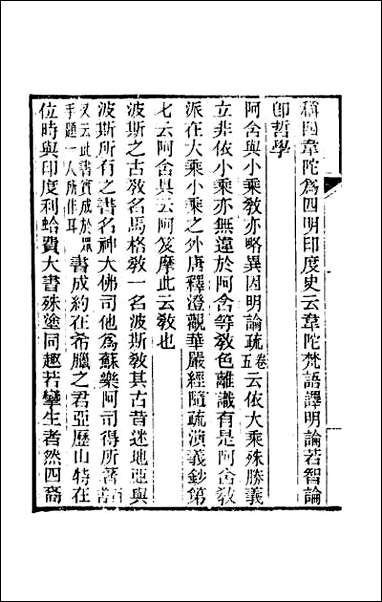 稱四韋陀爲四明印度史云韋陀梵語譯明論若智論
卽哲學
阿舍與小乘敎亦略異因明論疏卷五云依大乘殊勝義
立非依小乘亦無違於阿舍等敎色離識有是阿舍敎
派在大乘小乘之外唐釋澄觀華嚴經隨疏演義鈔第
七云阿舍具云阿笈摩此云敎也
波斯之古敎名馬格敎一名波斯敎其古昔迷地亞與
波斯所有之書名神大佛司他爲蘇樂阿司得所著
又云此書實成於眾手題一人所作耳書成約在希臘之君亞歷山特在
位時與印度利蛤費大書殊塗同趣若孿生者然四裔